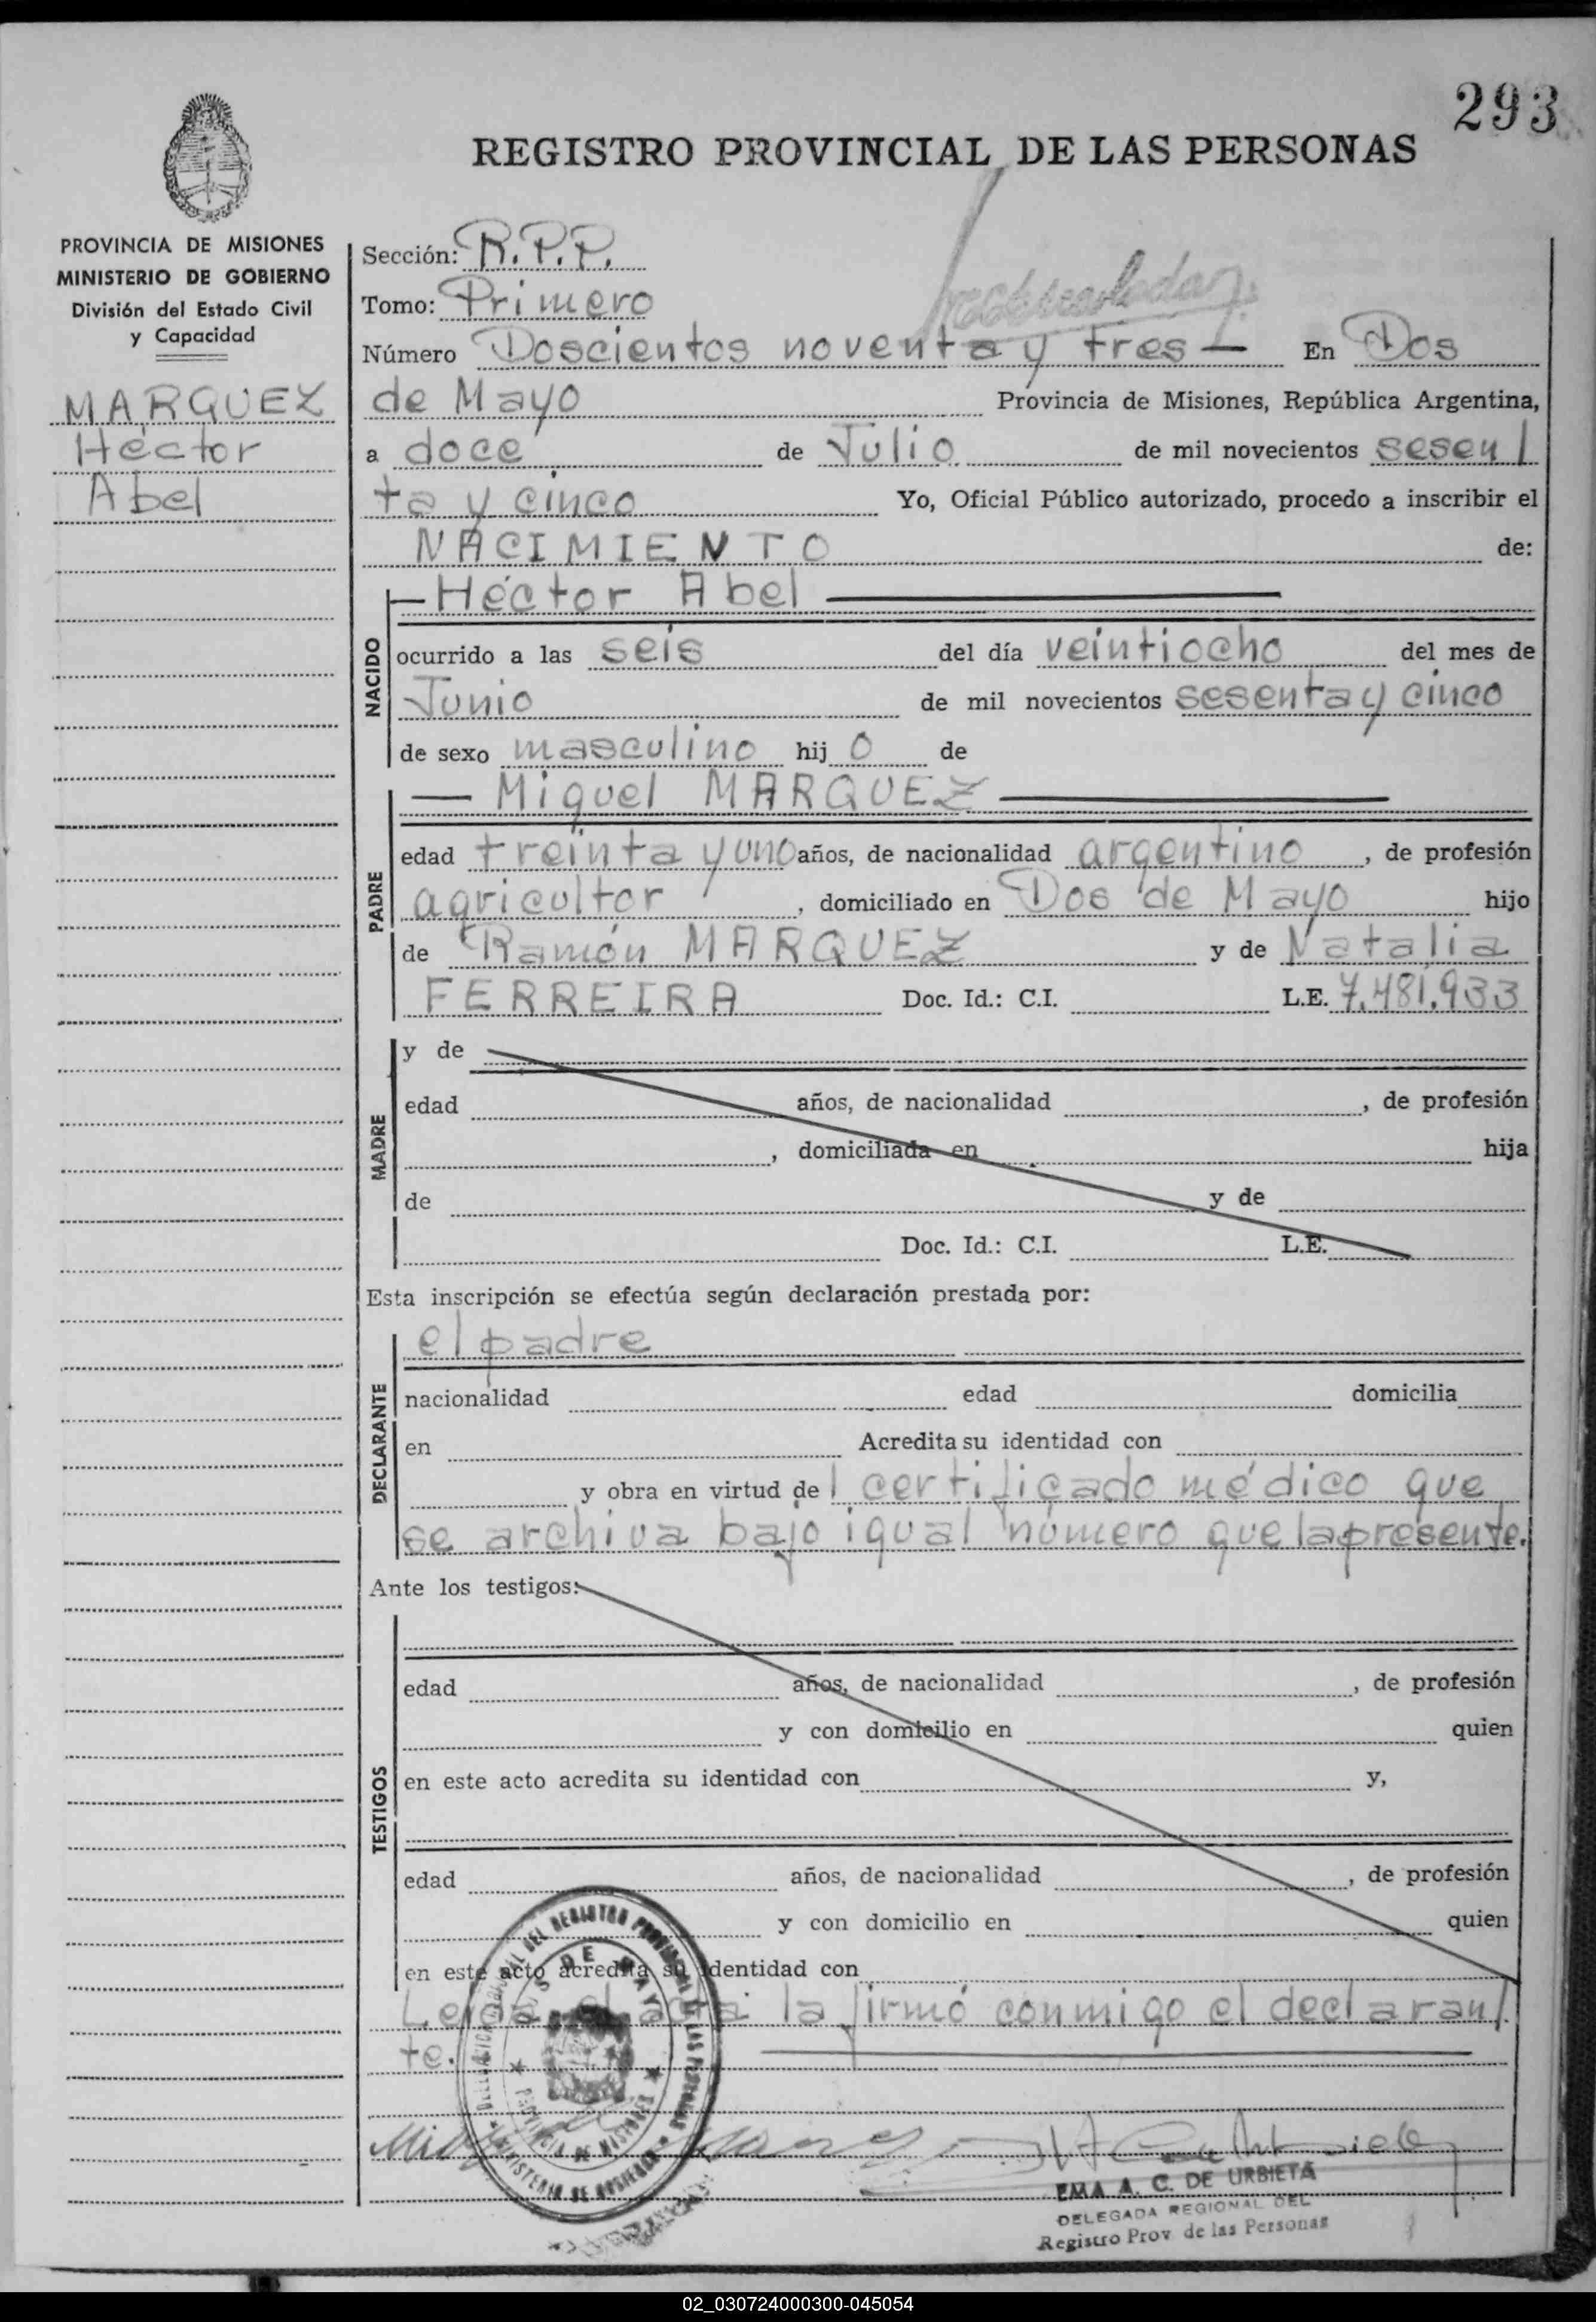 293
REGISTRO PROVINCIAL DE LAS PERSONAS
PROVINCIA DE MISIONES
MINISTERIO DE GOBIERNO
División del Estado Civil
y Capacidad
MARQUEZ
Héctor
Abel
Sección: R.P.P.
Tomo: Primero
Número Doscientos noventa y tres — En Dos
de Mayo Provincia de Misiones, República Argentina,
a doce de Julio de mil novecientos sesen
ta y cinco Yo, Oficial Público autorizado, procedo a inscribir el
NACIMIENTO de:
NACIDO
— Héctor Abel —
ocurrido a las seis del día veintiocho del mes de
Junio de mil novecientos sesenta y cinco
de sexo masculino hij o de
PADRE
— Miguel MARQUEZ —
edad treinta y uno años, de nacionalidad argentino, de profesión
agricultor, domiciliado en Dos de Mayo hijo
de Ramón MARQUEZ y de Natalia
FERREIRA Doc. Id.: C.I. L.E. 7.481.933
MADRE
y de
edad años, de nacionalidad , de profesión
, domiciliada en hija
de y de
Doc. Id.: C.I. L.E.
Esta inscripción se efectúa según declaración prestada por:
DECLARANTE
el padre
nacionalidad edad domicilia
en Acredita su identidad con
y obra en virtud de l certificado médico que
se archiva bajo igual número que la presente.
Ante los testigos:
TESTIGOS
edad años, de nacionalidad , de profesión
y con domicilio en quien
en este acto acredita su identidad con y,
edad años, de nacionalidad , de profesión
y con domicilio en quien
en este acto acredita su identidad con
Leída el acta la firmó conmigo el declaran
te.
DEL REGISTRO PROVINCIAL DE LAS PERSONAS
MINISTERIO DE GOBIERNO
DOS DE MAYO
PROVINCIA DE MISIONES
EMA A. C. DE URBIETA
DELEGADA REGIONAL DEL
Registro Prov. de las Personas
02_030724000300-045054